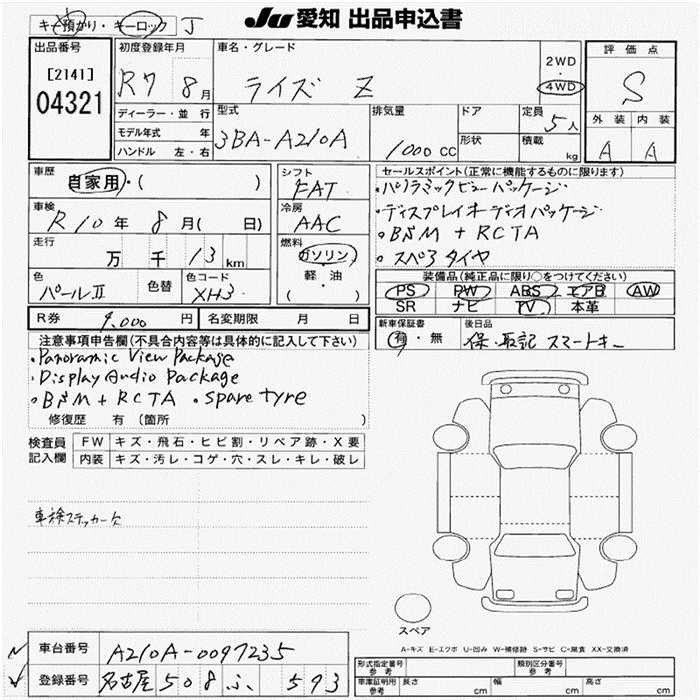 JU 愛知 出品申込書
キー預かり・キーロック J
出品番号
[2141]
04321
初度登録年月
R7 8月
車名・グレード
ライズ Z
2WD
・
4WD
評価点
S
外装 内装
A A
ディーラー・並行
モデル年式 年
ハンドル 左・右
型式
3BA-A210A
排気量
1000 CC
ドア
形状
定員
5人
積載
kg
車歴
自家用・( )
車検
R10年 8月( 日)
走行
万 千 13 km
色
パールII
色替
色コード
XH3
シフト
FAT
冷房
AAC
燃料
ガソリン
・
軽・油
( )
セールスポイント(正常に機能するものに限ります)
・パノラミックビューパッケージ
・ディスプレイオーディオパッケージ
・BSM + RCTA
・スペアタイヤ
装備品(純正品に限り○をつけてください)
PS PW ABS エアB AW
SR ナビ TV 本革
R券 9,000 円
名変期限 月 日
新車保証書
有・無
後日品
保・取記 スマートキー
注意事項申告欄(不具合内容等は具体的に記入して下さい)
・Panoramic View Package
・Display Audio Package
・BSM + RCTA ・Spare tyre
修復歴 有(箇所 )
検査員
記入欄
FW キズ・飛石・ヒビ割・リペア跡・X要
内装 キズ・汚レ・コゲ・穴・スレ・キレ・破レ
車検ステッカー欠
スペア
A-キズ E-エクボ U-凹み W-補修跡 S-サビ C-腐食 XX-交換済
車台番号 A210A-0097235
登録番号 名古屋 508 ふ 593
形式指定番号
参考
類別区分番号
参考
車庫証明用
参考
長さ cm 幅 cm 高さ cm